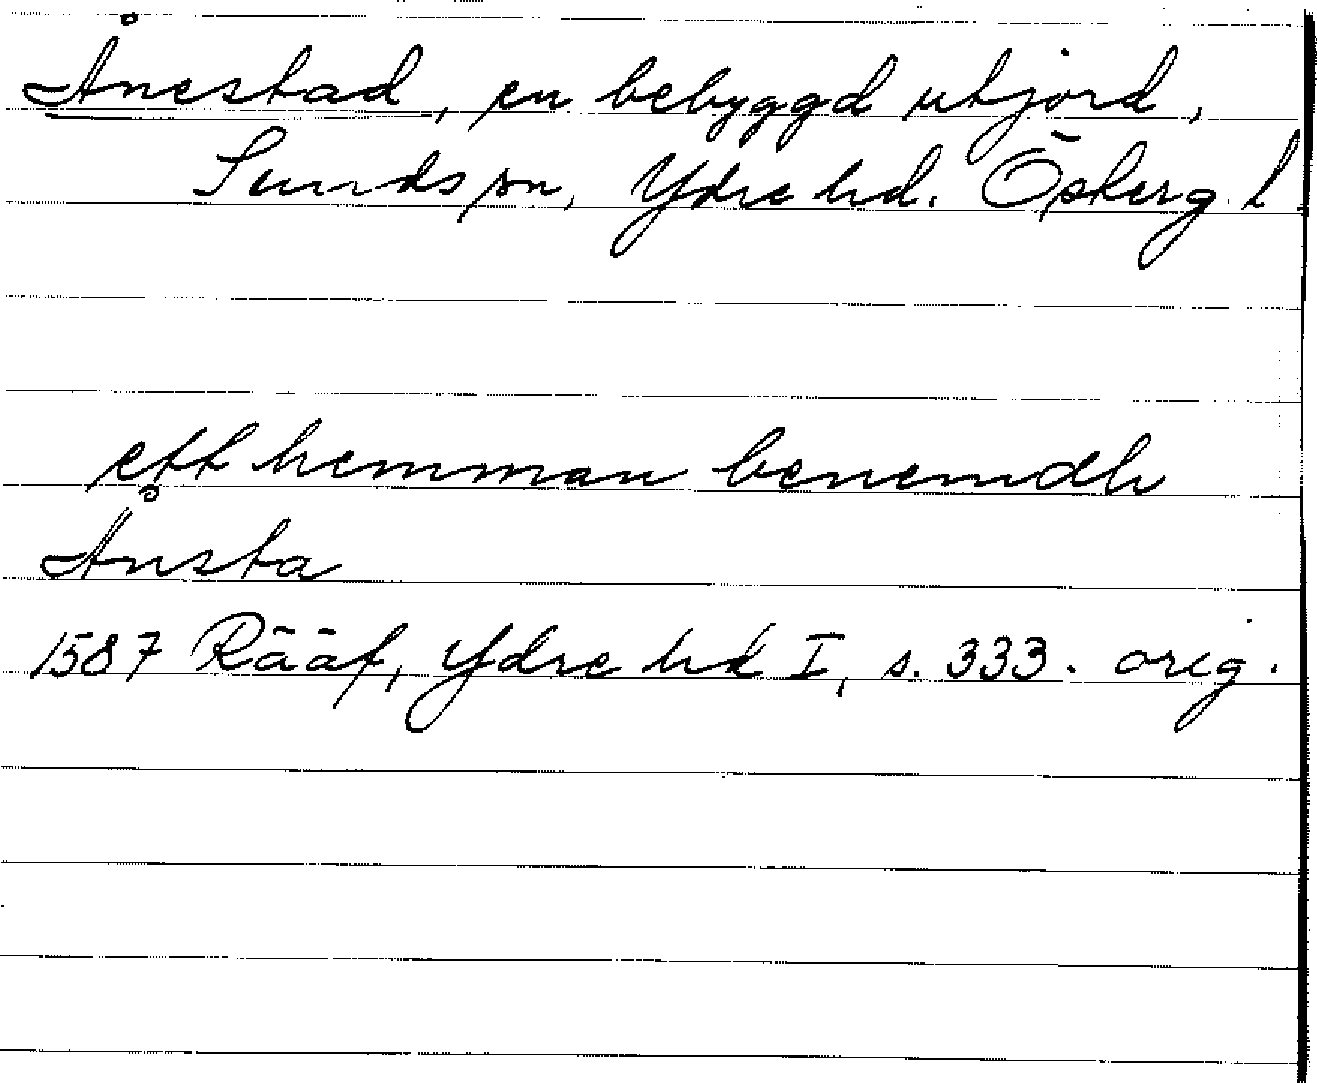 Ånestad, en bebyggd utjord,
Sunds sn, Ydre hd. Östergl.
ett hemman benemdh
Ånsta
1587 Rääf, Ydre hd I, s. 333. orig.